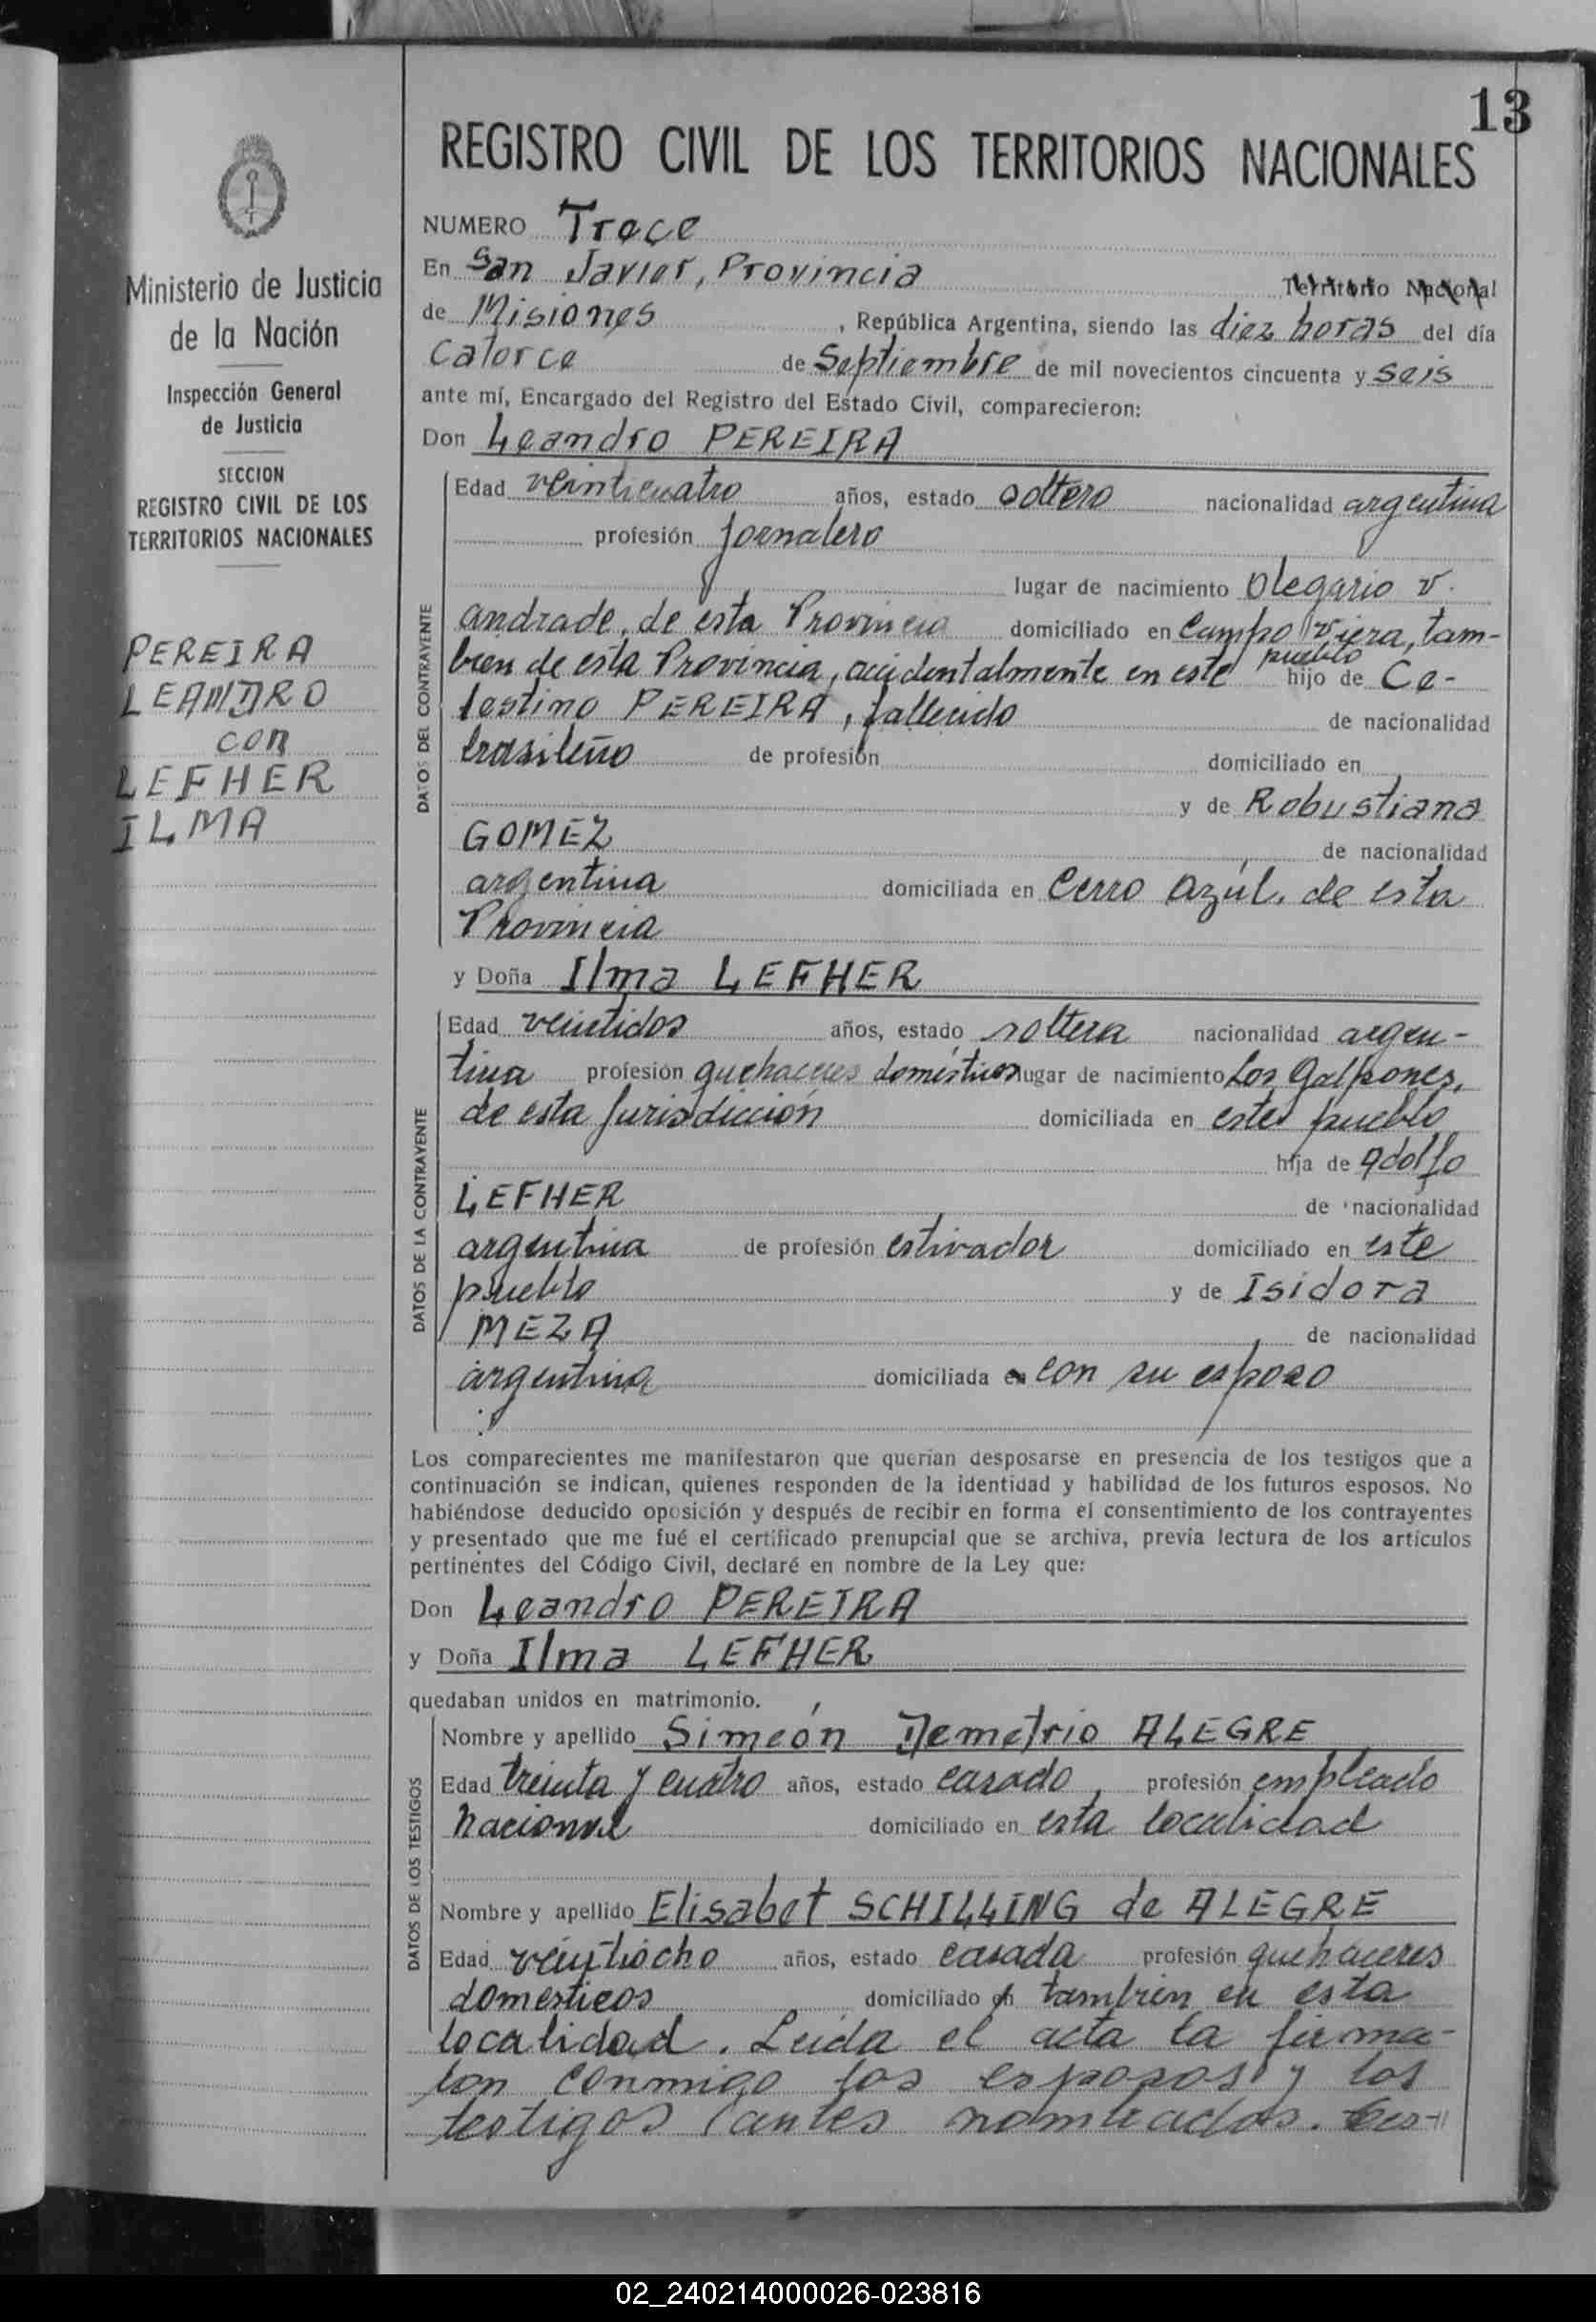 13
REGISTRO CIVIL DE LOS TERRITORIOS NACIONALES
Ministerio de Justicia
de la Nación
Inspección General
de Justicia
SECCION
REGISTRO CIVIL DE LOS
TERRITORIOS NACIONALES
PEREIRA
LEANDRO
con
LEFHER
ILMA
NUMERO Trece
En San Javier, Provincia Territorio Nacional
de Misiones , República Argentina, siendo las diez horas del día
catorce de Septiembre de mil novecientos cincuenta y seis
ante mí, Encargado del Registro del Estado Civil, comparecieron:
Don Leandro PEREIRA
DATOS DEL CONTRAYENTE
Edad veinticuatro años, estado soltero nacionalidad argentina
profesión jornalero
lugar de nacimiento Olegario V.
Andrade, de esta Provincia domiciliado en Campo Viera, tam-
bien de esta Provincia, accidentalmente en este pueblo hijo de Ce-
lestino PEREIRA, fallecido de nacionalidad
brasileño de profesión domiciliado en
y de Robustiana
GOMEZ de nacionalidad
argentina domiciliada en Cerro Azúl, de esta
Provincia
y Doña Ilma LEFHER
DATOS DE LA CONTRAYENTE
Edad veintidos años, estado soltera nacionalidad argen-
tina profesión quehaceres domésticos lugar de nacimiento Los Galpones,
de esta jurisdicción domiciliada en este pueblo
hija de Adolfo
LEFHER de nacionalidad
argentina de profesión estivador domiciliado en este
pueblo y de Isidora
MEZA de nacionalidad
argentina domiciliada en con su esposo
Los comparecientes me manifestaron que querían desposarse en presencia de los testigos que a
continuación se indican, quienes responden de la identidad y habilidad de los futuros esposos. No
habiéndose deducido oposición y después de recibir en forma el consentimiento de los contrayentes
y presentado que me fué el certificado prenupcial que se archiva, previa lectura de los artículos
pertinentes del Código Civil, declaré en nombre de la Ley que:
Don Leandro PEREIRA
y Doña Ilma LEFHER
quedaban unidos en matrimonio.
DATOS DE LOS TESTIGOS
Nombre y apellido Simeón Demetrio ALEGRE
Edad treinta y cuatro años, estado casado, profesión empleado
nacional domiciliado en esta localidad
Nombre y apellido Elisabet SCHILLING de ALEGRE
Edad veintiocho años, estado casada profesión quehaceres
domesticos domiciliado en tambien en esta
localidad. Leida el acta la firma-
ron conmigo los esposos y los
testigos antes nombrados.
02_240214000026-023816